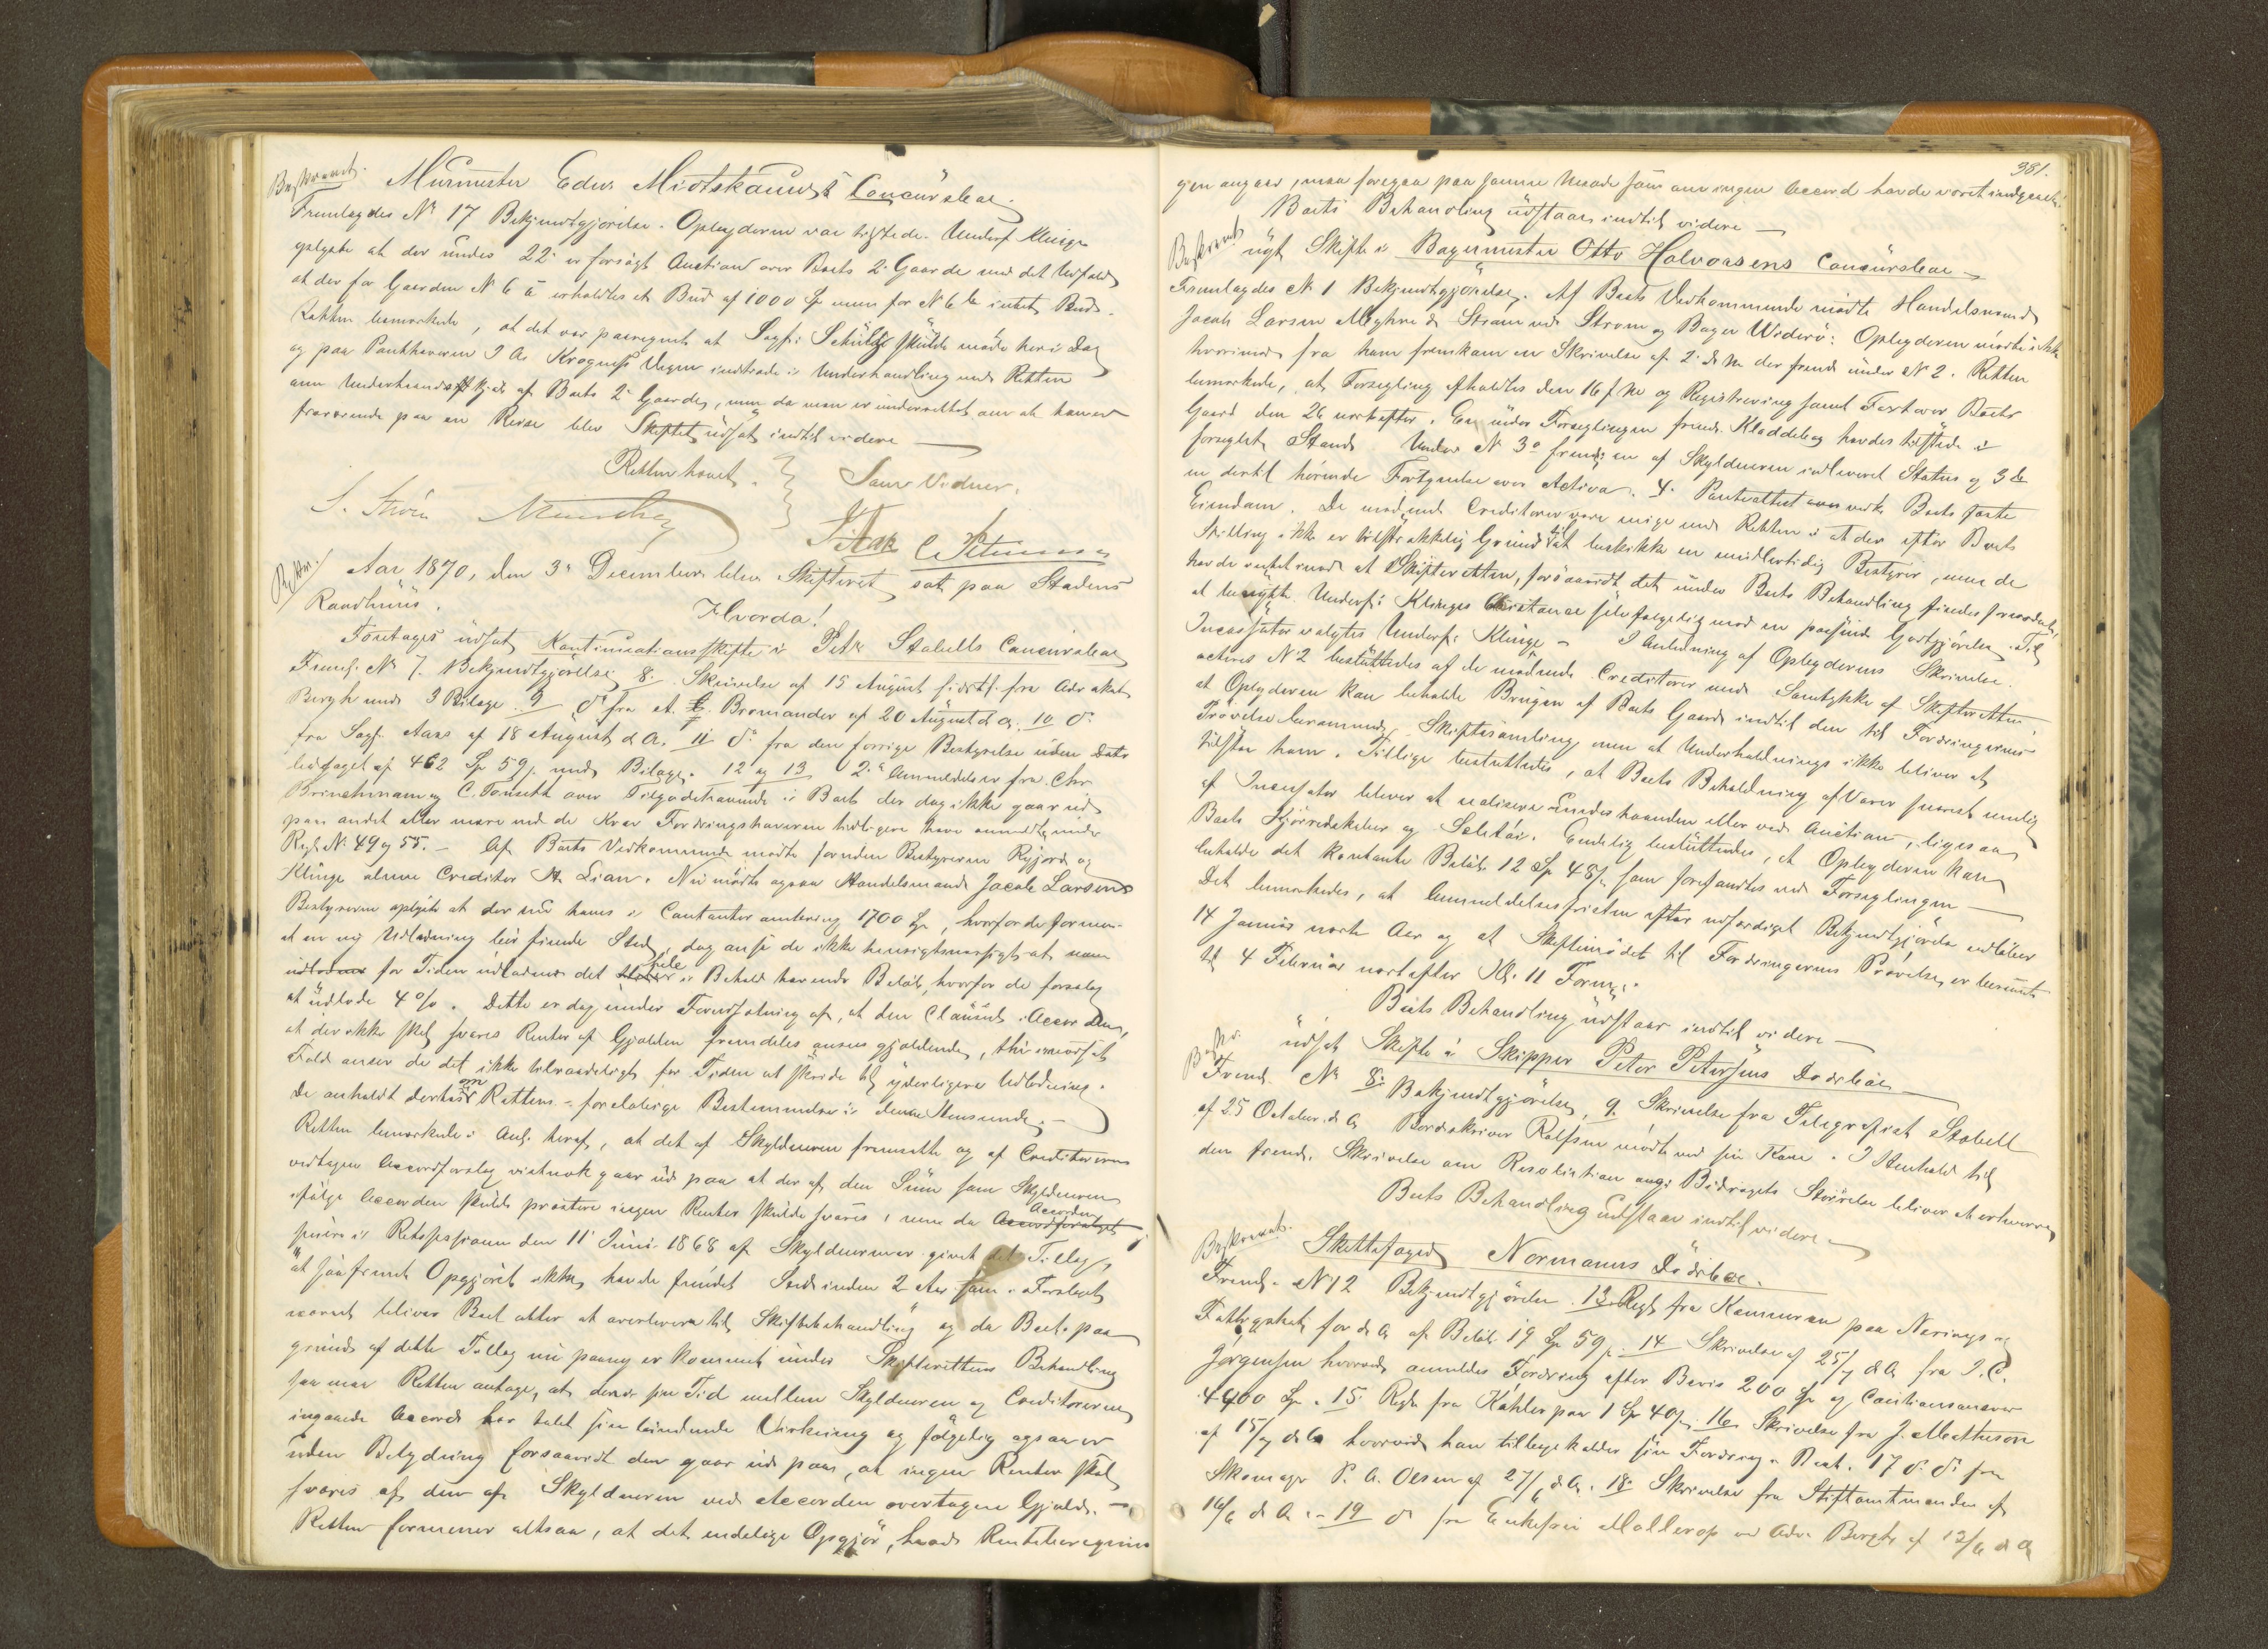 Beskrevet. Murmester Edw. Midtskaunds Concursboe.
Fremlagdes No 17 Bekjendtgjörelse. Opbyderen var tilstede. Underf. Klinge
oplyste at der under 22 er forsögt Auction over Boets 2de Gaarde med det Udfald
at der for Gaarden No 6 a erholdtes et Bud af 1000 Sp men for No 6 b intet Bud.
Retten bemærkede, at det var paaregnet at Sagf: Schultz skulde møde her i Dag
og paa Panthaveren I. A. Krogness Vegne indtræde i Underhandling med Retten
om Underhaandsskjøde af Boets 2de Gaarde, men da man er underrettet om at han er
fraværende paa en Reise blev Skiftet udsat indtil videre
Retten hævet. Som Vidner.
S. Strøm C. Petersen
Aar 1870, den 3de December blev Skifteret sat paa Stadens
Raadhuus.
Hvorda!
Foretages udsat Kontinuationsskifte i Petr Stabells Concursboe
Freml. No 7. Bekjendtgjörelse 8. Skrivelse af 15 August sidstl. fra Advokat
Bergh med 3 Bilage. 9 do fra A. E. Bromander af 20 August d. A. 10 do
fra Sagf. Aars af 18 August d A. 11 do fra den forrige Bestyrelse uden Dato
ledsaget af 462 Sp 59 s. med Bilage. 12 og 13 2de Anmeldelser fra Chr.
Brinchmann og C. Tonseth over Tilgodehavende i Boet der dog ikke gaar ud
paa andet eller mere end de Krav Fordringshaverne tidligere have anmeldt under
Regl. No 49 og 55. – Af Boets Vedkommende mødte foruden Bestyrerne Rygjord og
Klinge alene Creditor A. Lian. Nu mødte ogsaa Handelsmand Jacob Larsen
Bestyreren oplyste at der nu haves i Contanter omkring 1700 Sp, hvorfor de formene
at en ny Udlodning bør finde Sted, dog anse de ikke hensigtsmæssigt at man
for Tiden udlodder det hele i Behold havende Beløb, hvorfor de foreslog
at udlode 4 %. Dette er dog under Forudsætning af, at den Clausul i Accorden,
at der ikke skal svares Renter af Gjælden fremdeles ansees gjældende, thi i modsat
Fald anser de det ikke tilraadeligt for Tiden at skride til yderligere Udlodning.
De anholdt derhos om Rettens foreløbige Bestemmelse i denne Henseende. –
Retten bemærkede i Anl. heraf, at det af Skyldneren fremsatte og af Creditorerne
vedtagne Accordforslag vistnok gaar ud paa at der af den Sum som Skyldneren
ifølge Accorden skulde præstere ingen Renter skulde svares, men da Accorden
senere i Retssessionen den 11 Juni 1868 af Skyldneren er givet det Tillæg,
at saafremt Opgjöret ikke havde fundet Sted inden 2 Aar som i Forslaget
nævnt bliver Boet atter at overlevere til Skiftebehandling og da Boet paa
grund af dette Tillæg nu paany er kommet under Skifterettens Behandling
saa maa Retten antage, at den i sin Tid mellem Skyldneren og Creditorerne
ingaaede Accord har tabt sin bindende Virkning og følgelig ogsaa er
uden Betydning forsaavidt den gaar ud paa, at ingen Renter skal
svares af den af Skyldneren ved Accorden overtagne Gjæld. –
Retten formener altsaa, at det endelige Opgjör, hvad Renteberegnin
381.
gen angaar, maa foregaa paa samme Maade som om ingen Accord havde været indgaaet.
Boets Behandling udstaar indtil videre –
Beskrevet nyt Skifte i Bagermester Otto Halvorsens Concursboe –
Fremlagdes No 1 Bekjendtgjörelse. Af Boets Vedkommende mødte Handelsmænd
Jacob Larsen Strøm og Bager Widerö. Opbyderen mødte ikke
hvorimod fra ham fremkom en Skrivelse af 2 d. M. der freml. under No 2. Retten
bemærkede, at Forsegling afholdtes den 16 f M og Registrering samt Taxt over Boets
Gaard den 26 næstefter. En under Forseglingen freml. Kladdebog havdes tilstede i
forseglet Stand. Under No 3a freml. en af Skyldneren indleveret Status og 3b
en dertil hörende Fortegnelse over Activa. 4. Panteattest vedk. Boets faste
Eiendom. De mødende Creditorer vare enige med Retten i at der efter Boets
Stilling ikke er tilstrækkelig Grund til at beskikke en midlertidig Bestyrer, men de
havde intet imod at Skifteretten, forsaavidt det under Boets Behandling findes fornødent,
at benytte Underf: Klinges Assistance selvfølgelig mod en passende Godtgjörelse. Til
Incassator valgtes Underf: Klinge – I Anledning af Opbyderens Skrivelse
actens No 2 besluttedes af de mødende Creditorer med Samtykke af Skifteretten,
at Opbyderen kan beholde Brugen af Boets Gaard indtil den til Fordringernes
Prøvelse berammede Skiftesamling, men at Underholdninge ikke bliver at
tilstaa ham. Tillige besluttedes, at Boets Beholdning af Varer snarest mulig
af Incassator bliver at realisere underhaanden eller ved Auction, ligesaa
Boets Kjörredskaber og Seletöi. Endelig besluttedes, at Opbyderen kan
beholde det kontante Beløb 12 Sp 48 s, som forefandtes ved Forseglingen –
Det bemærkedes, at Anmeldelsesfristen efter udfærdiget Bekjendtgjörelse udløber
14 Januar næste Aar og at Skiftemödet til Fordringernes Prövelse er berammet
til 4 Februar næstefter Kl. 11 Form.
Boets Behandling udstaar indtil videre –
Beskr. udsat Skifte i Skipper Peter Petersens Dødsboe –
Freml. No 8. Bekjendtgjörelse, 9. Skrivelse fra Telegrafist Stabell
af 25 October d. A. Bordskriver Rolfsen mødte ved sin Kone. I Henhold til
den freml. Skrivelse om Resolution ang. Bidragets Størrelse bliver at erhverve
Boets Behandling udstaar indtil videre –
Beskrevet. Skottefoged Normanns Dödsboe.
Freml. No 12 Bekjendtgjörelse. 13. Regl. fra Kemneren paa Nærings og
Fattigskat for d. A. af Beløb 19 Sp 59 s. 14 Skrivelse af 25/7 d A. fra I. C.
Jørgensen hvorved anmeldes Fordring efter Bevis 200 Sp og Cautionsansvar
4400 Sp. 15 Regn. fra Köhler paa 1 Sp 40 s. 16 Skrivelse fra J. Matheson
af 15/7 d A hvorved han tilbagekalder sin Fordring i Boet. 17 do do fra
Skomager P. A. Olsen af 27/6 d A. 18 Skrivelse fra Stiftamtmanden af
16/6 d A. – 19 do fra Enkefru Mollerop ved Adv. Bergh af 13/6 d A